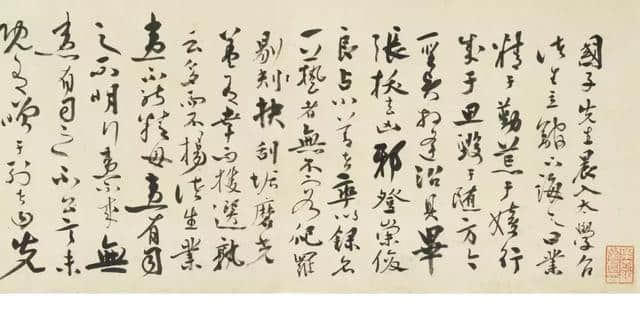 國子先生晨入太學召
諸生立館下誨之曰業
精于勤荒于嬉行
成于思毀于隨方今
聖賢相逢治具畢
張拔去凶邪登崇俊
良占小善者率以錄名
一藝者無不庸爬羅
剔抉刮垢磨光
蓋有幸而獲選孰
云多而不揚諸生業
患不能精毋患有司
之不明行患不成無
患有司之不公言未
既有笑于列者曰先